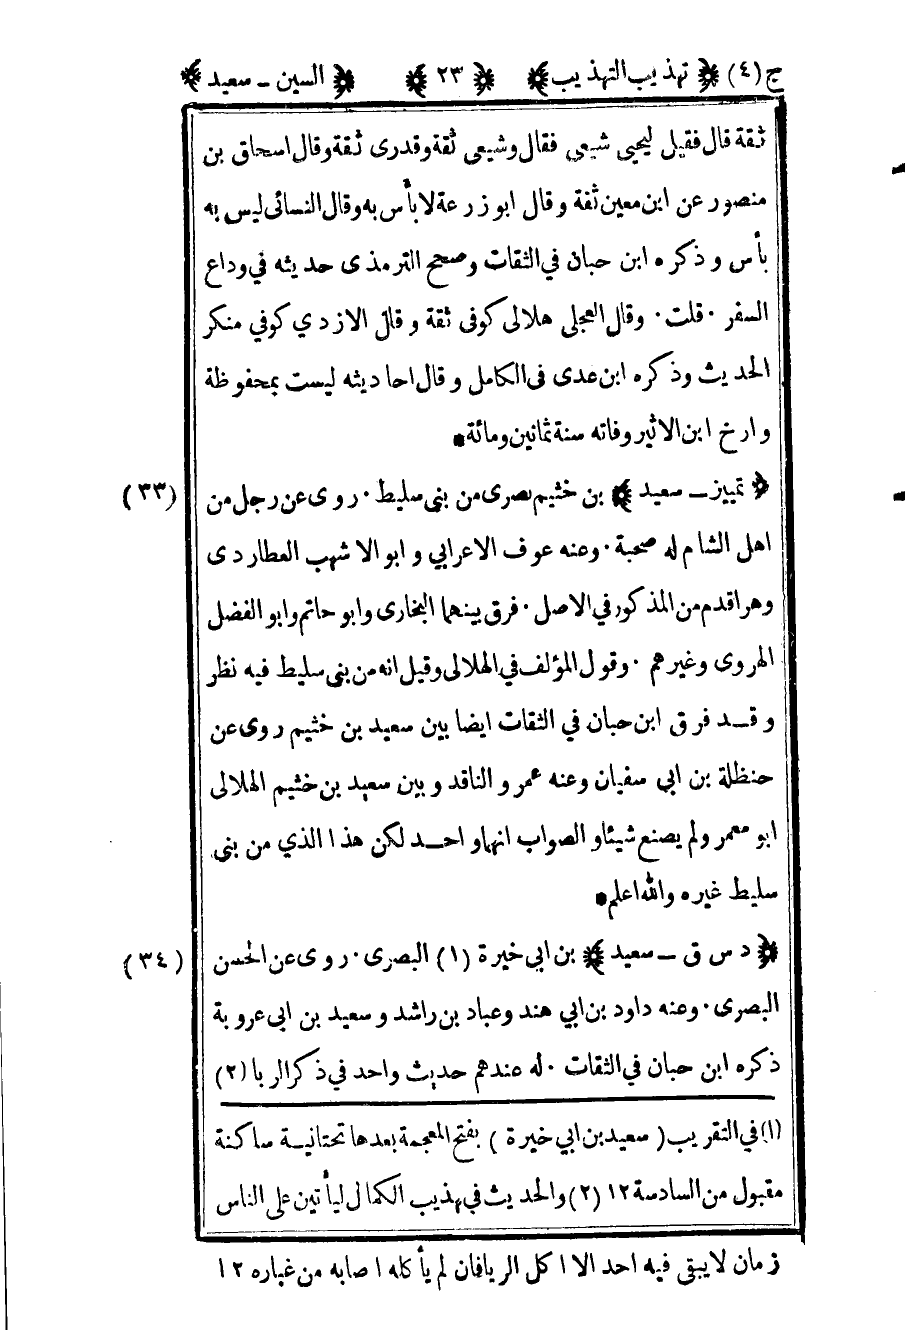 ج (٤) ﴿ تهذيب التهذيب ﴾ ﴿ ٢٣ ﴾ ﴿ السين ـ سعيد ﴾
ثقة قال فقيل ليحيى شيعي فقال وشيعي ثقة وقدرى ثقة وقال اسحاق بن
منصور عن ابن معين ثقة وقال ابو زرعة لا بأس به وقال النسائى ليس به
بأس وذكره ابن حبان في الثقات وصحح الترمذى حديثه في وداع
السفر · قلت · وقال العجلى هلالى كوفى ثقة وقال الازدي كوفي منكر
الحديث وذكره ابن عدى فى الكامل وقال احاديثه ليست بمحفوظة
وارخ ابن الاثير وفاته سنة ثمانين ومائة •
﴿ تمييز ـ سعيد ﴾ بن خثيم بصرى من بنى سليط · روى عن رجل من (٣٣)
اهل الشام له صحبة · وعنه عوف الاعرابي وابو الاشهب العطاردى
وهو اقدم من المذكور في الاصل · فرق بينهما البخارى وابو حاتم وابو الفضل
الهروى وغيرهم · وقول المؤلف في الهلالى وقيل انه من بنى سليط فيه نظر
وقــد فرق ابن حبان في الثقات ايضا بين سعيد بن خثيم روى عن
حنظلة بن ابي سفيان وعنه عمرو الناقد وبين سعيد بن خثيم الهلالى
ابو معمر ولم يصنع شيئا والصواب انهما واحــد لكن هذا الذي من بنى
سليط غيره والله اعلم •
﴿ د س ق ـ سعيد ﴾ بن ابي خيرة (١) البصرى · روى عن الحسن (٣٤)
البصرى · وعنه داود بن ابي هند وعباد بن راشد وسعيد بن ابى عروبة
ذكره ابن حبان في الثقات · له عندهم حديث واحد في ذكر الربا (٢)
(١) في التقريب ( سعيد بن ابي خيرة ) بفتح المعجمة بعدها تحتانيــة ساكنة
مقبول من السادسة ١٢ (٢) والحديث في تهذيب الكمال ليأتين على الناس
زمان لا يبقى فيه احد الا اكل الربا فان لم يأكله اصابه من غباره ١٢